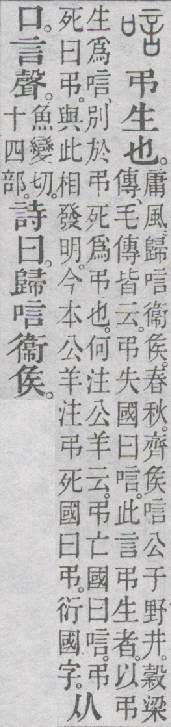 弔生也。庸風。歸唁衞矦。春秋。齊矦唁公于野井。穀梁
傳、毛傳皆云。弔失國曰唁。此言弔生者。以弔
生爲唁。別於弔死爲弔也。何注公羊云。弔亡國曰唁。弔
死曰弔。與此相發明。今本公羊注弔死國曰弔。衍國字。从
口。言聲。魚變切。
十四部。詩曰。歸唁衞矦。